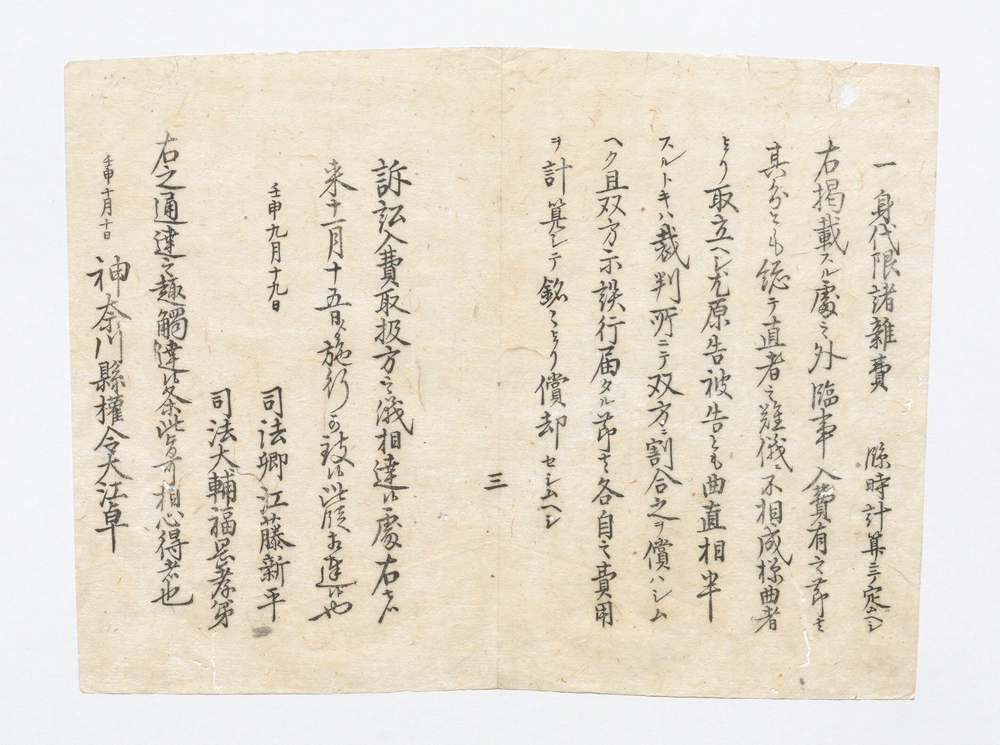 一 身代限諸雑費 臨時計算ヲ定ムヘシ
右掲載スル處之外臨事入費有之節ハ
其分とも總テ直者之難儀ニ不相成様曲者
より取立ヘシ尤原告被告とも曲直相半
スルトキハ裁判所ニテ双方ニ割合之ヲ償ハシム
ヘク且双方示談行届タル節ハ各自之費用
ヲ計算シテ銘々より償却セシムヘシ
三
訴訟入費取扱方之儀相達候處右者
来十一月十五日ゟ施行可致候此段相達候也
壬申九月十九日
司法卿江藤新平
司法大輔福岡孝弟
右之通達之趣觸達候条此旨可相心得者也
壬申十月十日 神奈川縣權令大江卓